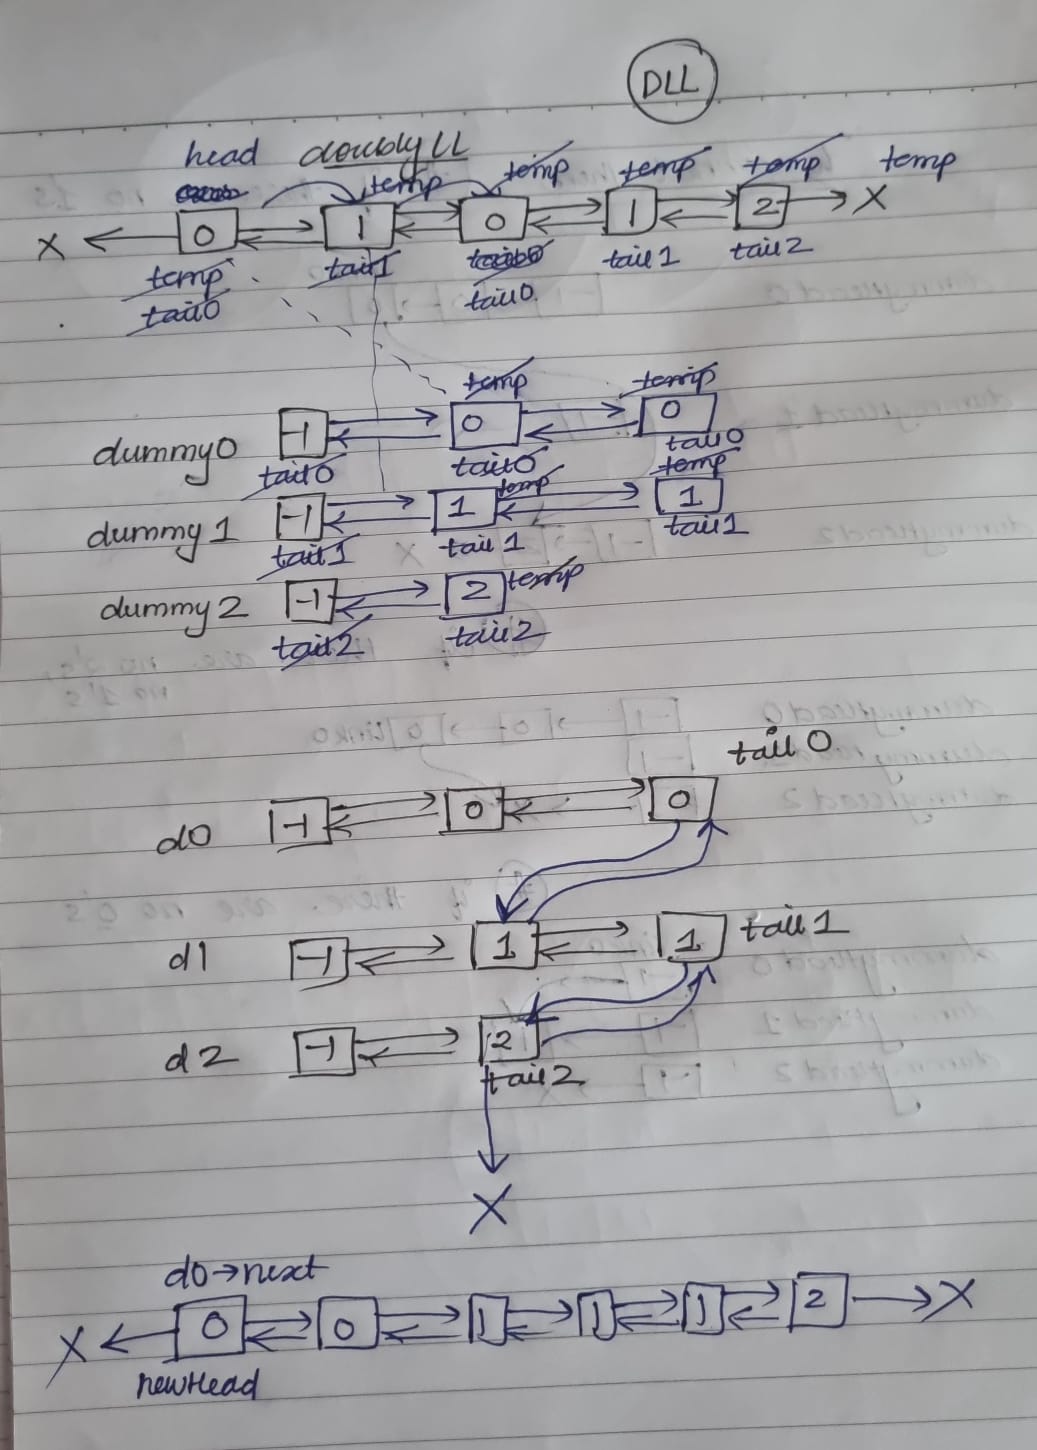 DLL
head doubly LL
temp temp temp temp temp
X 0 1 0 1 2 X
temp tail1 tail0 tail 1 tail 2
tail0 tail0
temp temp
dummy0 -1 0 0
tail0 tail0 tail0
temp temp
dummy 1 -1 1 1
tail1 tail 1 tail1
dummy 2 -1 2 temp
tail2 tail2
tail 0
d0 -1 0 0
d1 -1 1 1 tail 1
d2 -1 2
tail2
X
d0→next
X 0 0 1 1 1 2 X
newHead